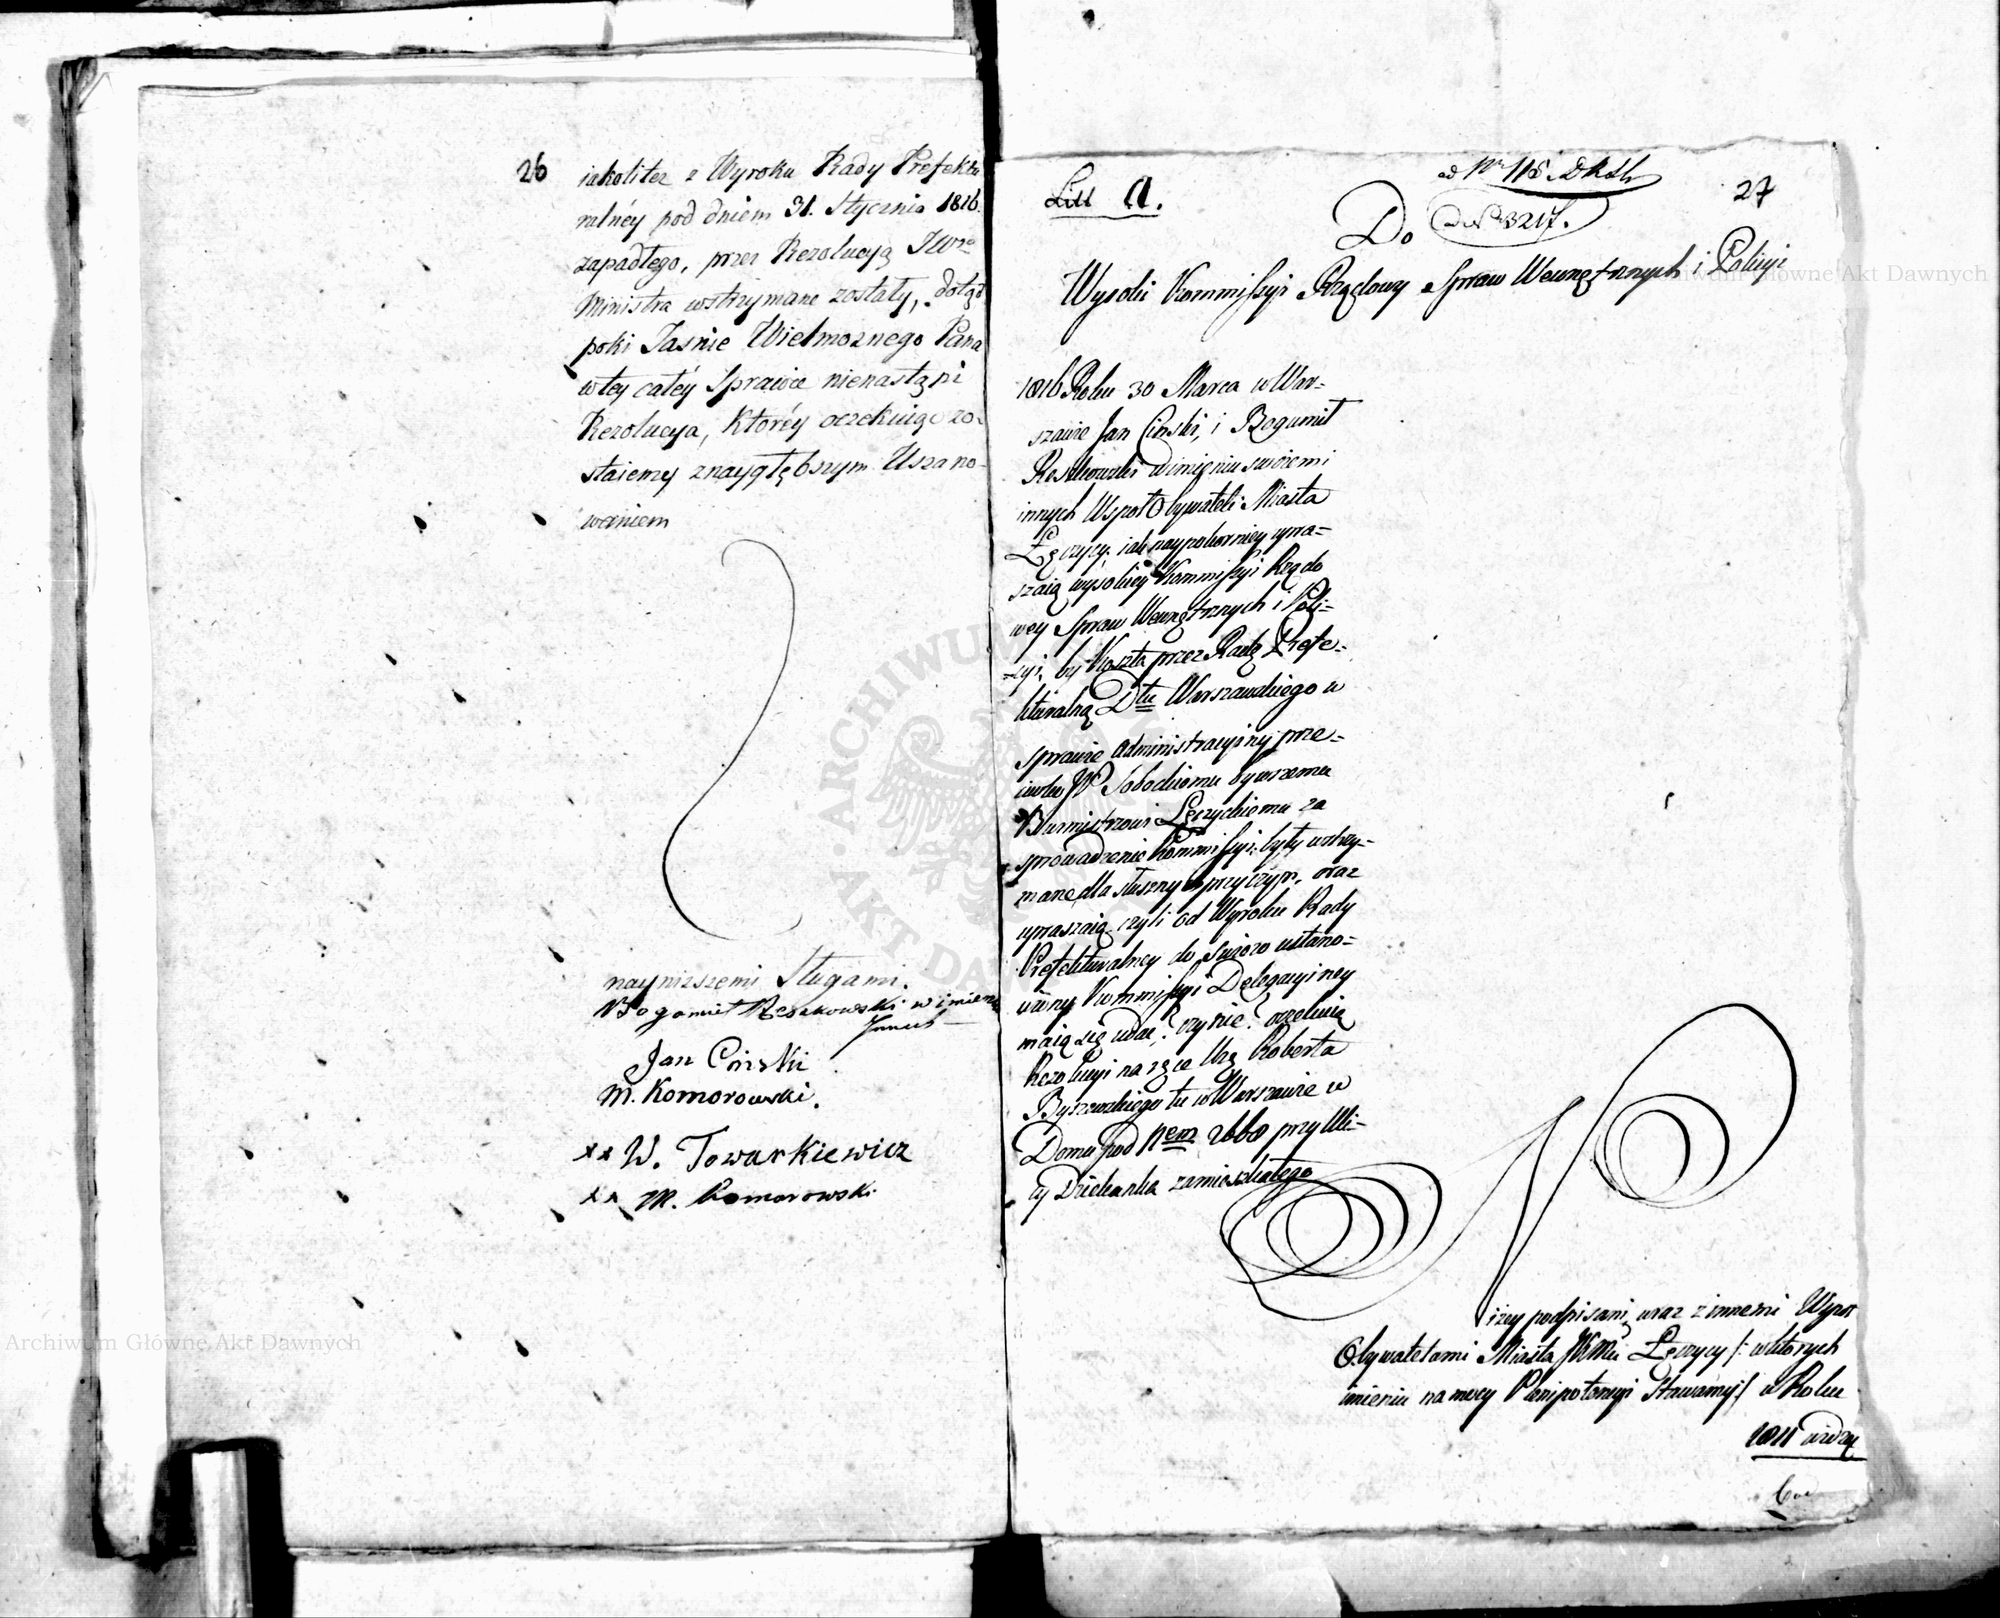 26
iakoliter z Wyroku Rady Prefektu
ralnéy pod dniem 31. Stycznia 1816.
zapadłego, przez Rezolucyą JWgo
Ministra wstrzymane zostały, dotąd
poki Jasnie Wielmoznego Pana
w tey całéy Sprawie nienastąpi
Rezolucya, Któréy oczekuiąc zo-
staiemy znaygłębszym Uszano-
waniem
naynizszemi Sługami.
Bogumił Reszkowski w imieniu
Innych
Jan Cinski
M. Komorowski.
xx W. Towarkiewicz
xx M. Komorowski
Litt A.
ad Nr 118. DKSth
27
Do
ad No 3217.
Wysoki Kommissyi Rządowy Spraw Wewnętrznych i Policyi
1816 Roku 30 Marca w War=
szawie Jan Cinski, i Bogumił
Reszkowski w imieniu swoiem i
innych Wspoł Obywateli Miasta
Łęczycy, iak naypokorniey upra=
szaią wysokiey Kommissyi Rządo
wey Spraw Wewnętrznych i Poli=
=cyi, by Koszta przez Radę Prefe=
kturalną Dtu Warszawskiego w
sprawie administracyiny prze=
ciwko JP Sobockiemu bywszemu
Burmistrzowi Łęczyckiemu za
sprowadzenie Kommissyi, były wstrzy=
mane dla słuszny przyczyn, oraz
upraszaią czyli od Wyroku Rady
Prefekturalney do swiezo ustano=
wiony Kommissyi Delegacyiney
maią się udać, czy nie? oczekuią
Rezolucyi na ręce Urę Roberta
Byszewskiego tu w Warszawie w
Domu pod Nem 2660 przy Uli=
cy Dziekanka zamieszkałego
N
iżey podpisani wraz z innemi Wspoł
Obywatelami Miasta Łęczycy /: w których
imieniu na mocy Plenipotencyi stawamy :/ w Roku
1811 widząc